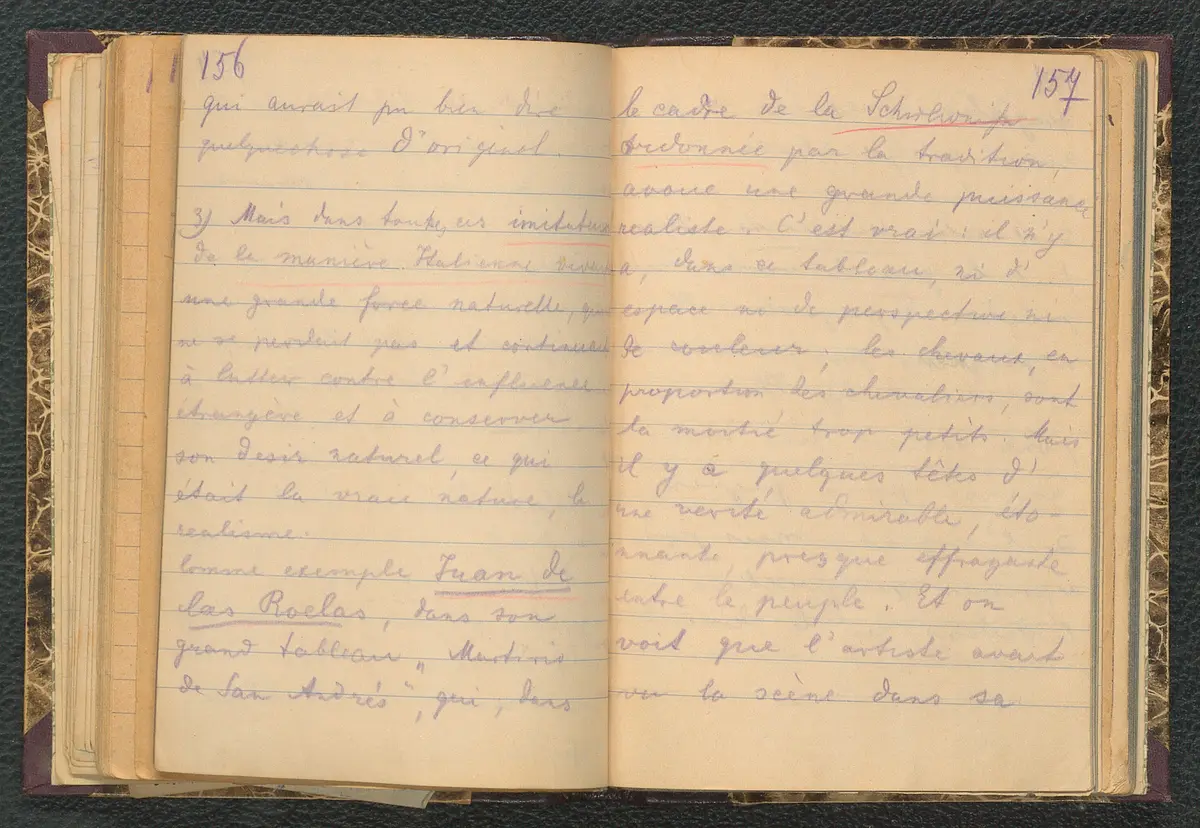 156
qui aurait pu bien dire
quelquechose d'original.
3) Mais dans toutes ces imitateurs
de la manière Italienne vivait
une grande force naturelle, qui
ne se perdait pas et continuait
à lutter contre l'influence
étrangère et à conserver
son desir naturel, ce qui
était la vraie nature, le
realisme.
Comme exemple Juan de
las Roelas, dans son
grand tableau „Martirio
de San Andrés“, qui, dans
157
le cadre de la
ordonnée par la tradition,
avoue une grande puissance
realiste. C'est vrai: il n'y
a, dans ce tableau, ni d'
espace ni de perspective ni
de couleur; les chevaux, en
proportion des chevaliers, sont
la moitié trop petits. Mais
il y a quelques têtes d'
une verité admirable, éto-
nnante, presque effrayante
entre le peuple. Et on
voit que l'artiste avait
vu la scène dans sa